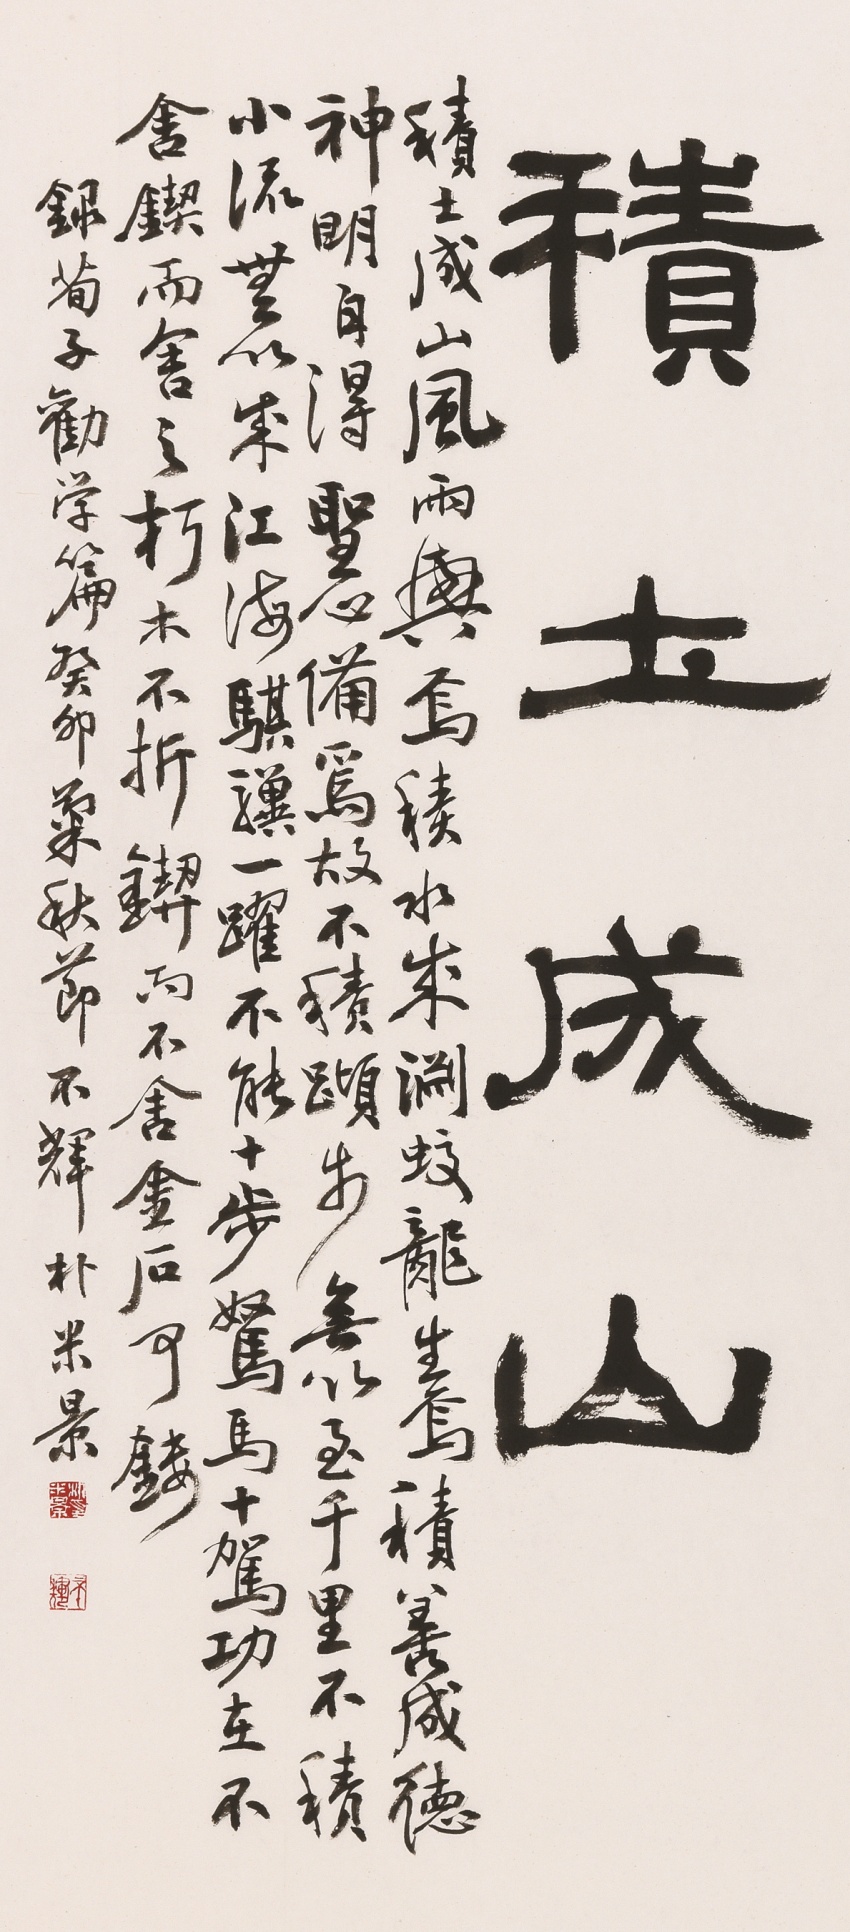 積土成山
積土成山風雨興焉積水成淵蛟龍生焉積善成德
神明自得聖心備焉故不積蹞步無以至千里不積
小流無以成江海騏驥一躍不能十步駑馬十駕功在不
舍鍥而舍之朽木不折鍥而不舍金石可鏤
錄荀子勸学篇癸卯菊秋節不輝朴米景